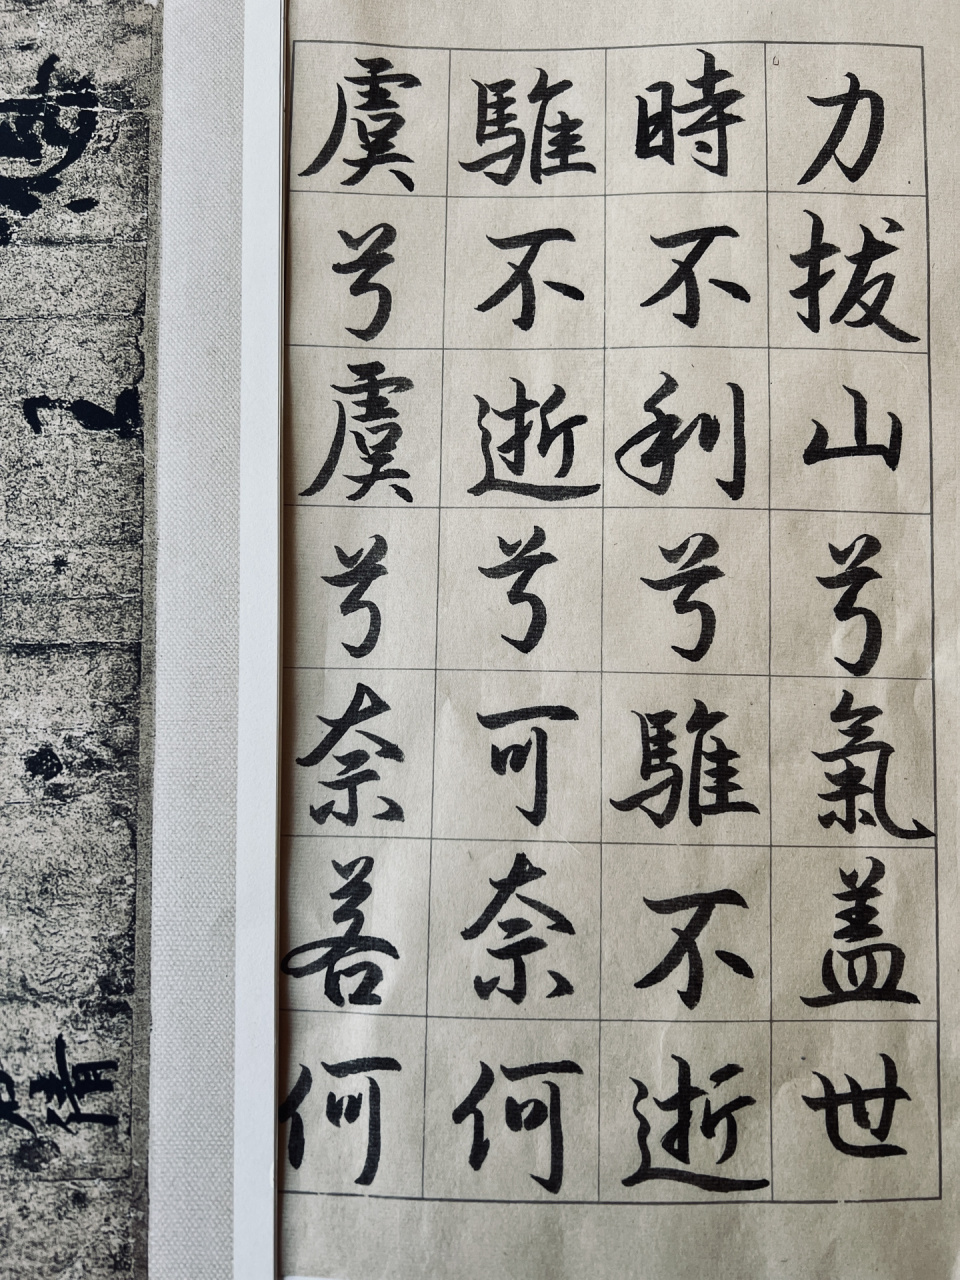 力拔山兮氣盖世
時不利兮騅不逝
騅不逝兮可奈何
虞兮虞兮奈若何